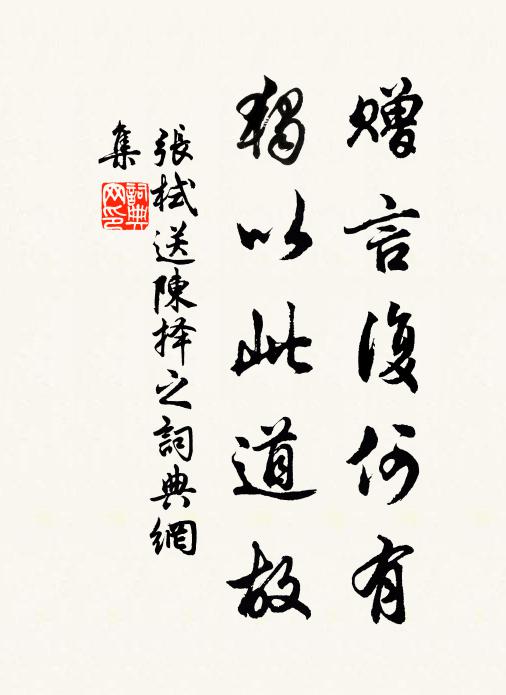 赠言復何有
獨以此道故
張栻送陳择之詞典網
集
詞典
网印